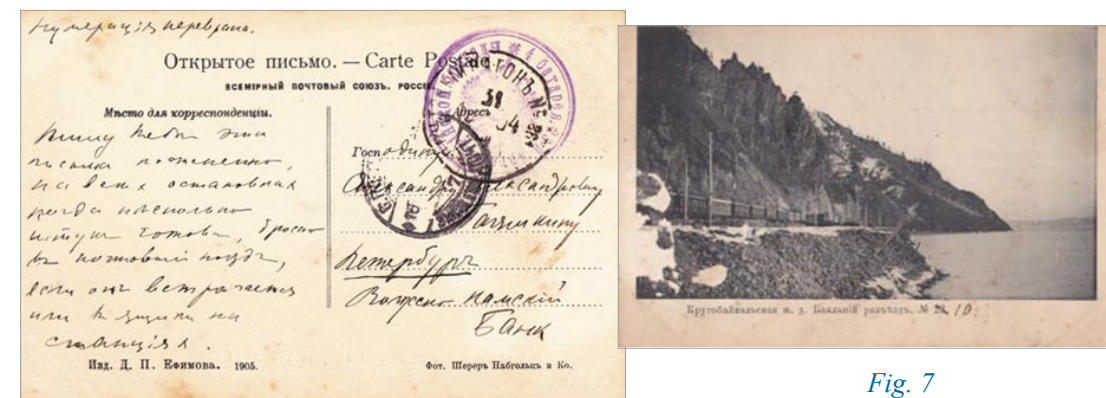 Нумерація переврана.
Открытое письмо. — Carte Postale.
ВСЕМІРНЫЙ ПОЧТОВЫЙ СОЮЗЪ. РОССІЯ.
Мѣсто для корреспонденціи.
Пишу тебѣ эти
письма постепенно,
на всѣхъ остановкахъ
когда нѣсколько
штукъ готово, бросаю
въ почтовый поѣздъ,
если онъ встрѣчается
или въ ящики на
станціяхъ.
Изд. Д. П. Ефимова. 1905.
Адресъ
Господину
Александру Александровичу
Петербургъ
Волжско-Камскій
Банк
Фот. Шереръ Набгольцъ и Ко.
ВАГОНЪ №
Кругобайкальская ж. д. Бакланій разъѣздъ. № 10.
Fig. 7